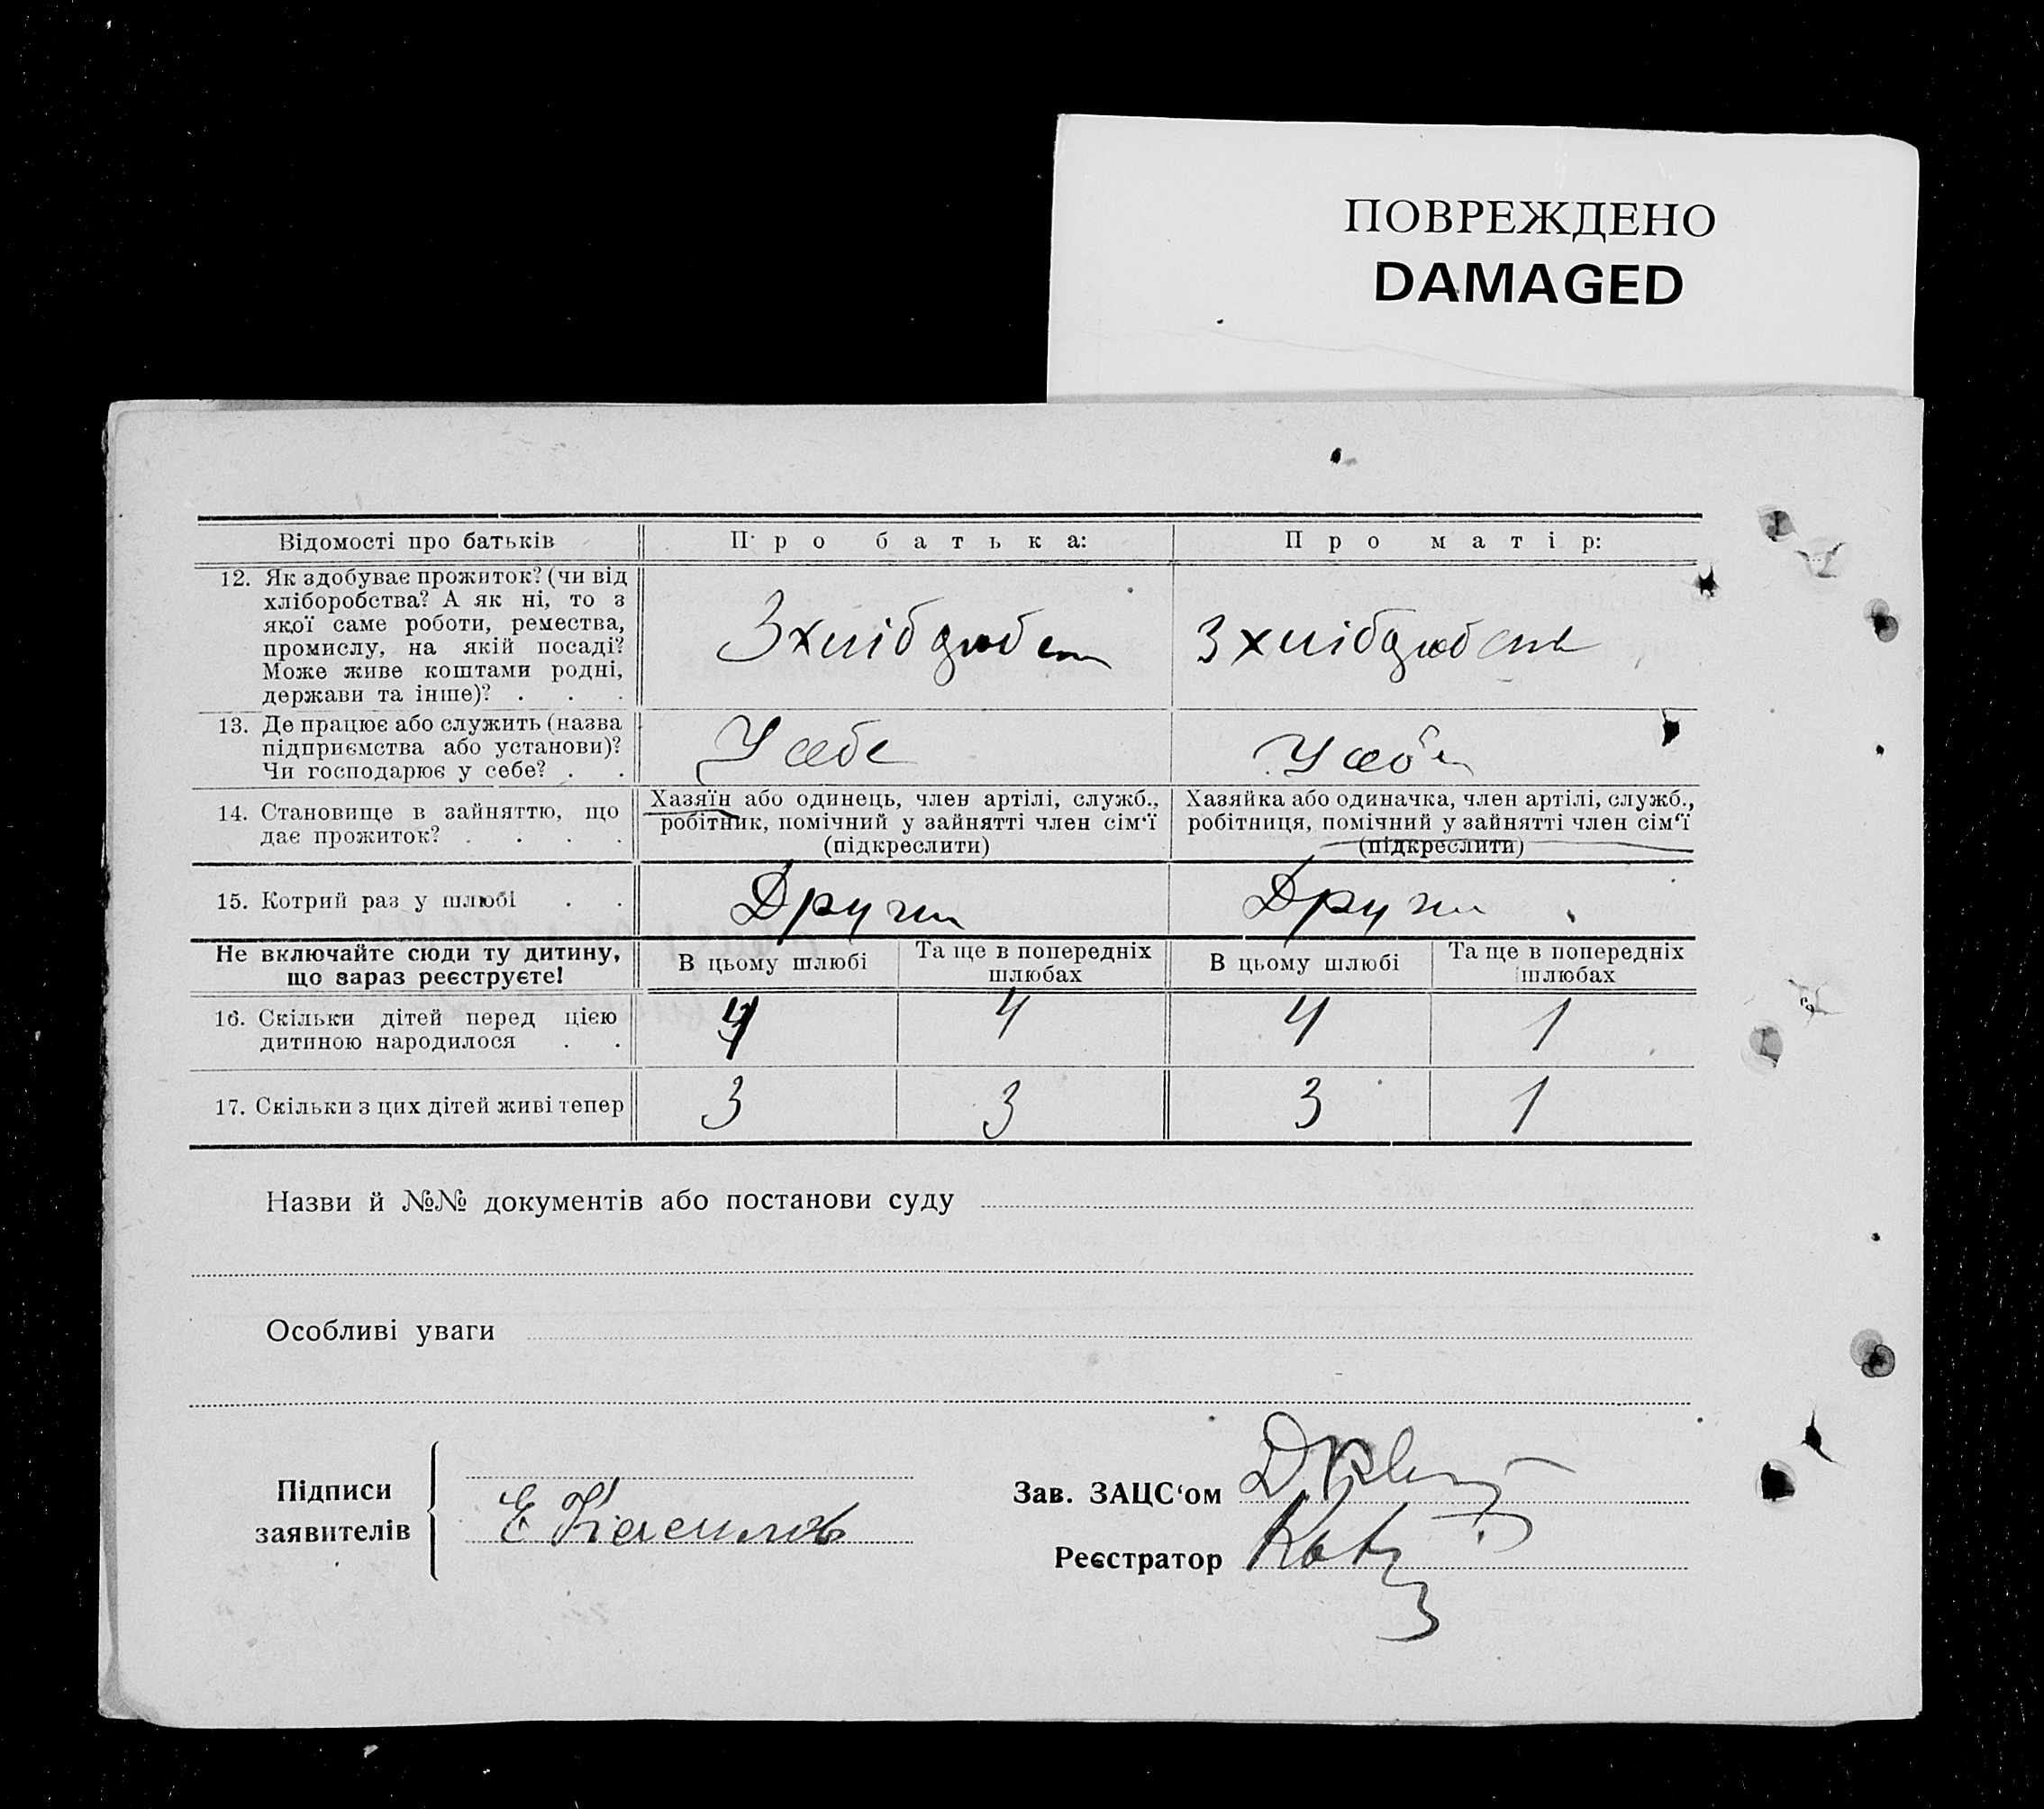 ПОВРЕЖДЕНО
DAMAGED
Відомості про батьків
Про батька:
Про матір:
12. Як здобуває прожиток? (чи від
хліборобства? А як ні, то з
якої саме роботи, ремества,
промислу, на якій посаді?
Може живе коштами родні,
держави та інше)? . . .
З хліб
З хліб
13. Де працює або служить (назва
підприємства або установи)?
Чи господарює у себе? . .
У себе
У себе
14. Становище в зайняттю, що
дає прожиток? . . . .
Хазяїн або одинець, член артілі, служб.,
робітник, помічний у зайнятті член сім‘ї
(підкреслити)
Хазяйка або одиначка, член артілі, служб.,
робітниця, помічний у зайнятті член сім‘ї
(підкреслити)
15. Котрий раз у шлюбі . .
Други
Други
Не включайте сюди ту дитину,
що зараз реєструєте!
В цьому шлюбі
Та ще в попередніх
шлюбах
В цьому шлюбі
Та ще в попередніх
шлюбах
16. Скільки дітей перед цією
дитиною народилося . .
4
4
4
1
17. Скільки з цих дітей живі тепер
3
3
3
1
Назви й №№ документів або постанови суду
Особливі уваги
Підписи
заявителів
Е
Зав. ЗАЦС‘ом
Реєстратор